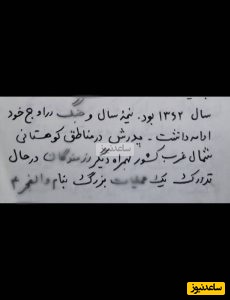 سال ۱۳۶۲ بود. نیمهٔ سال و جنگ در اوج خود
ادامه داشت. پدرش در مناطق کوهستانی
شمال غرب کشور بهمراه دیگر رزمندگان در حال
تدارک یک عملیات بزرگ بنام والفجر ۴
ساعدنیوز
ساعدنیوز